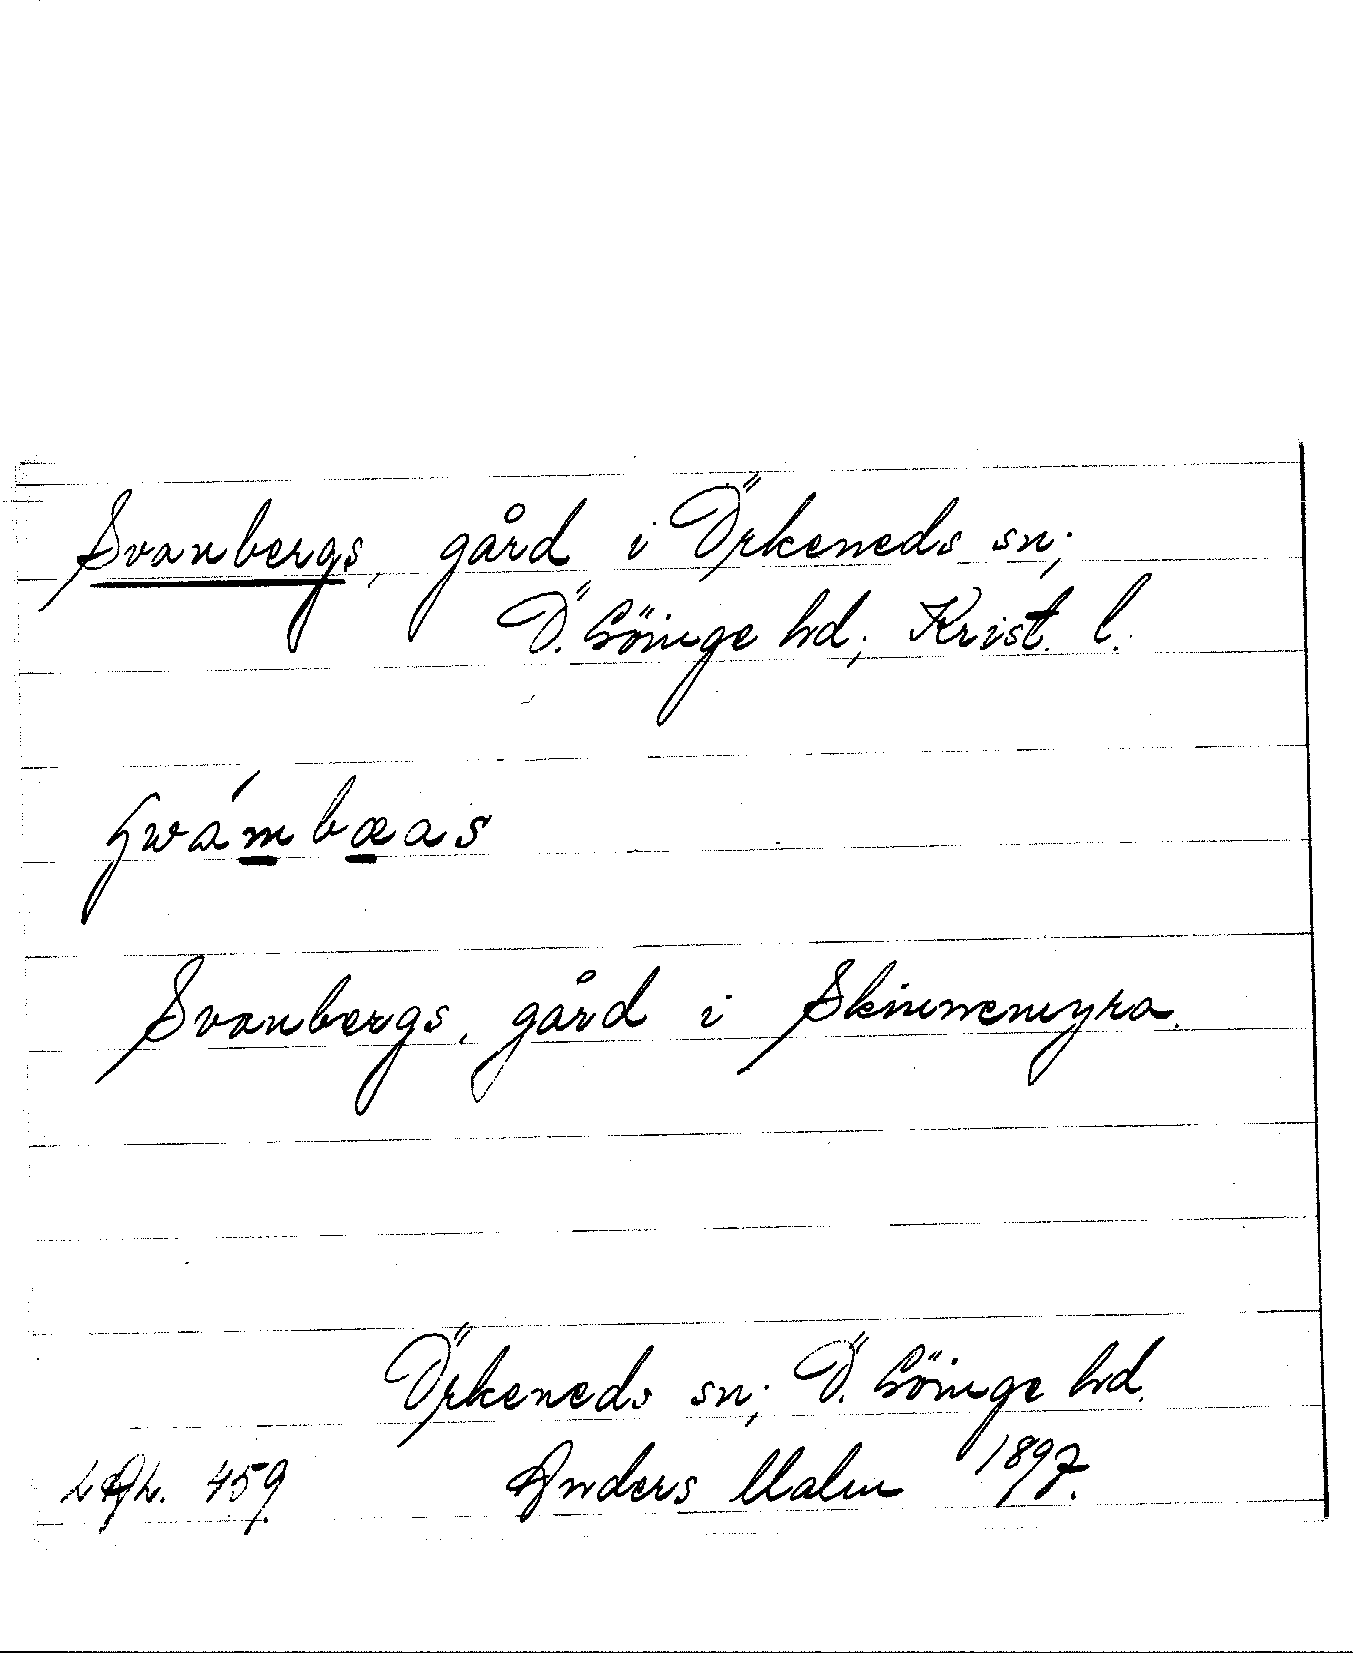 Svanbergs, gård i Örkeneds sn;
Ö. Göinge hd; Krist. l.
Svanbergs, gård i Skinnemyra.
Örkeneds sn; Ö. Göinge hd.
459 Anders Malm 1897.